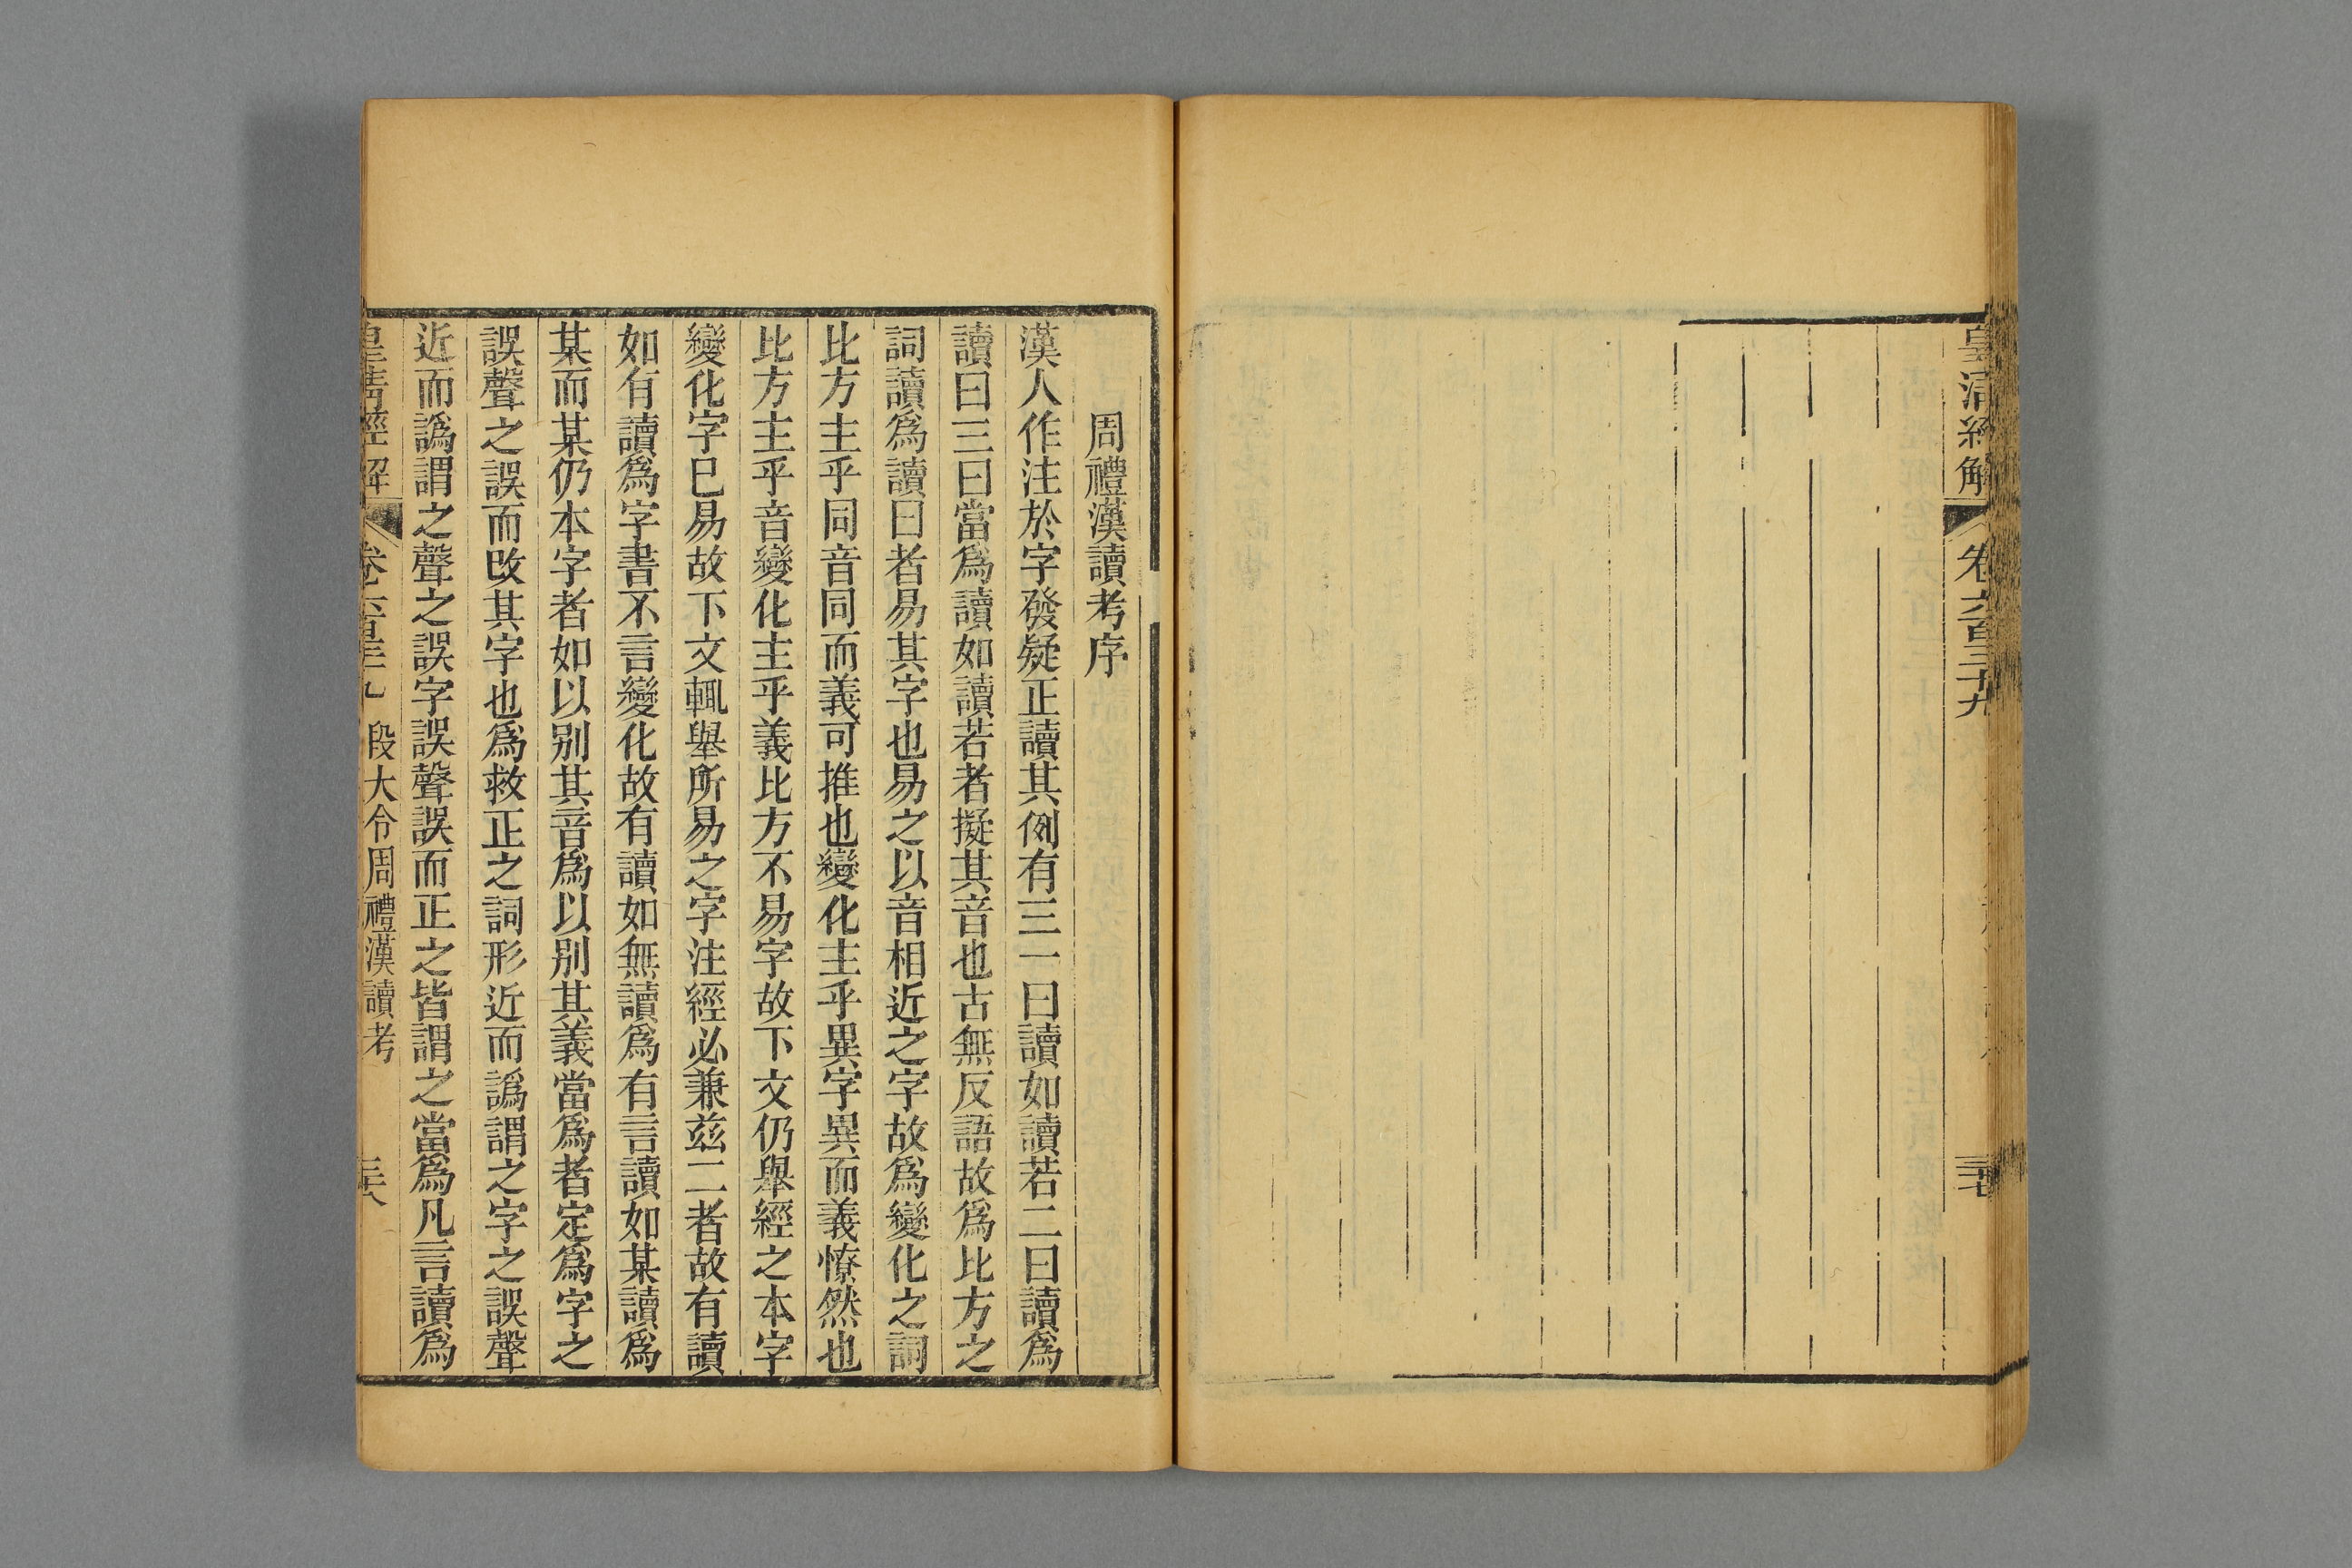 皇清經解
卷六百三十九
三七
周禮漢讀考序
漢人作注於字發疑正讀其例有三一曰讀如讀若二曰讀爲
讀曰三曰當爲讀如讀若者擬其音也古無反語故爲比方之
詞讀爲讀曰者易其字也易之以音相近之字故爲變化之詞
比方主乎同音同而義可推也變化主乎異字異而義憭然也
比方主乎音變化主乎義比方不易字故下文仍舉經之本字
變化字已易故下文輒舉所易之字注經必兼茲二者故有讀
如有讀爲字書不言變化故有讀如無讀爲有言讀如某讀爲
某而某仍本字者如以别其音爲以别其義當爲者定爲字之
誤聲之誤而改其字也爲救正之詞形近而譌謂之字之誤聲
近而譌謂之聲之誤字誤聲誤而正之皆謂之當爲凡言讀爲
皇清經解
卷六百三十九
段大令周禮漢讀考
三六